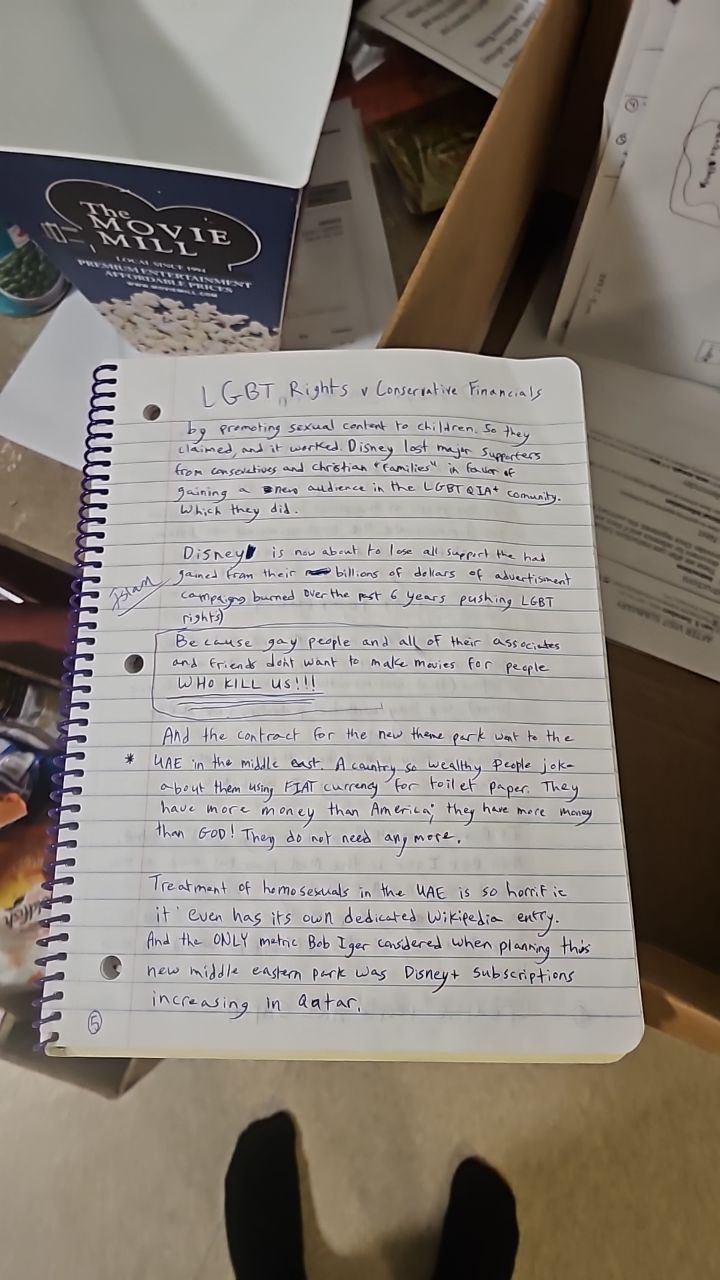 The
MOVIE
MILL
LOCAL SINCE 1994
PREMIUM ENTERTAINMENT
AFFORDABLE PRICES
WWW.MOVIEMILL.COM
LGBT Rights v Conservative Financials
by promoting sexual content to children. So they
claimed, and it worked. Disney lost major supporters
from conservitives and christian "families" in favor of
gaining a new audience in the LGBTQIA+ comunity.
Which they did.
Disney is now about to lose all support the had
gained from their billions of dollars of advertisment
campaigns burned over the past 6 years pushing LGBT
rights)
Because gay people and all of their associates
and friends dont want to make movies for people
WHO KILL US!!!
And the contract for the new theme park went to the
* UAE in the middle east. A country so wealthy people joke
about them using FIAT currency for toilet paper. They
have more money than America; they have more money
than GOD! They do not need any more.
Treatment of homosexuals in the UAE is so horrific
it even has its own dedicated Wikipedia entry.
And the ONLY metric Bob Iger considered when planning this
new middle eastern park was Disney+ subscriptions
increasing in Qatar.
5